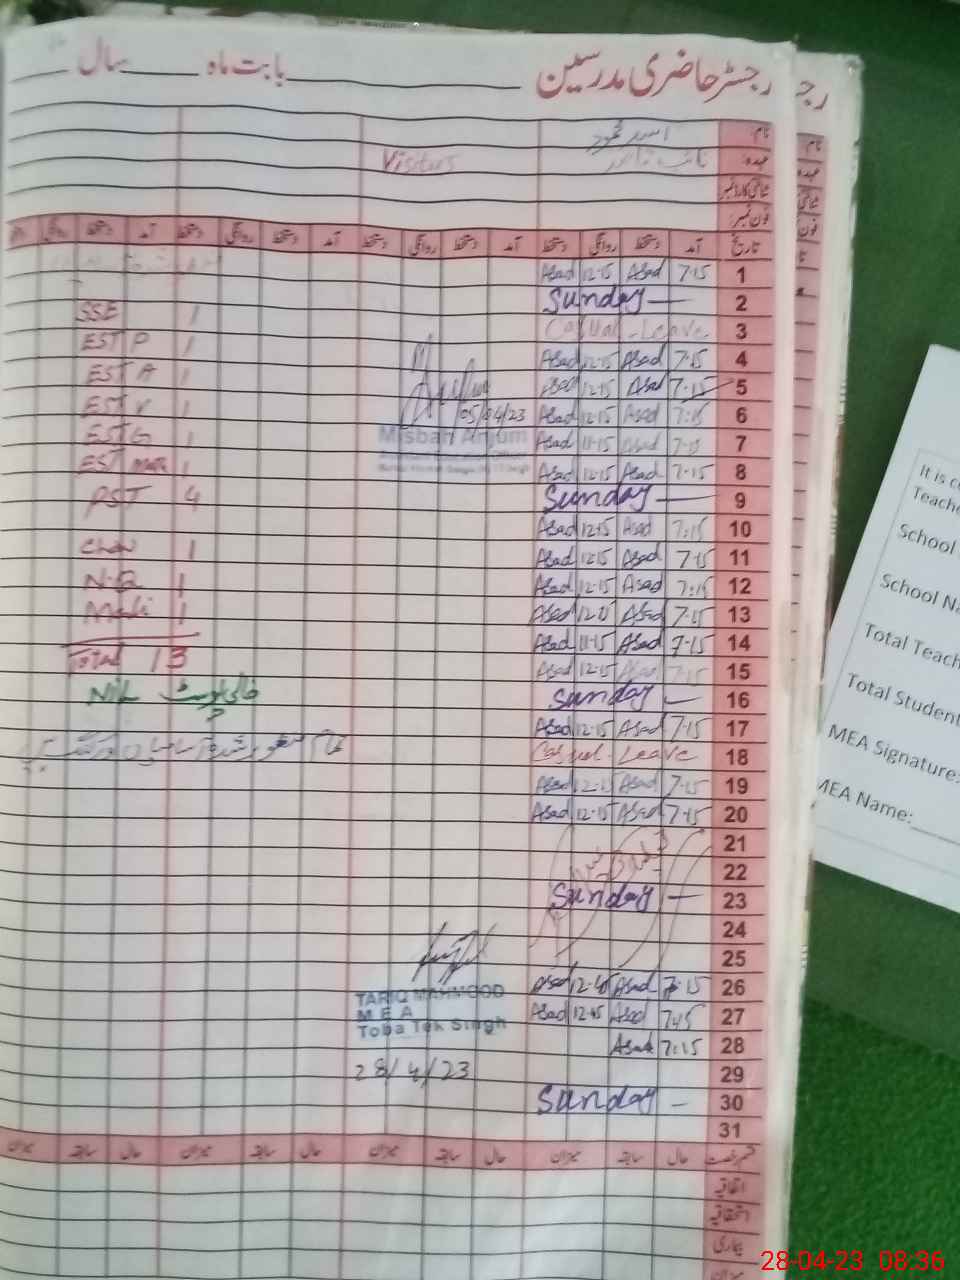 رجسٹر حاضری مدرسین بابت ماہ سال
نام:
عہدہ: Visitors
شناختی کارڈ نمبر
فون نمبر:
تاریخ آمد دستخط روانگی دستخط آمد دستخط روانگی دستخط آمد دستخط روانگی دستخط آمد دستخط روانگی
1 7-15 Asad 12-15 Asad
2 Sunday —
3 Casual - Leave
4 7-15 Asad 12-15 Asad
5 7-15 Asad 12-15 Asad
6 7-15 Asad 12-15 Asad
7 7-15 Asad 11-15 Asad
8 7-15 Asad 12-15 Asad
9 Sunday —
10 7:15 Asad 12-15 Asad
11 7-15 Asad 12-15 Asad
12 7:15 Asad 12-15 Asad
13 7-15 Asad 12-15 Asad
14 7-15 Asad 11-15 Asad
15 7-15 Asad 12-15 Asad
16 Sunday —
17 7-15 Asad 12-15 Asad
18 Casual - Leave
19 7-15 Asad 12-15 Asad
20 7-15 Asad 12-15 Asad
21
22
23 Sunday —
24
25
26 7-15 Asad 12-45 Asad
27 7-15 Asad 12-45 Asad
28 7:15 Asad
29
30 Sunday -
31
05/04/23
Misbah Anjum
Assistant Education Officer
SSE 1
EST P 1
EST A 1
EST V 1
EST G 1
EST 1
PST 4
1
N.Q 1
Mali 1
Total 13
Nil خالی پوسٹ
TARIQ MAHMOOD
M E A
Toba Tek Singh
28/4/23
حال سابقہ میزان حال سابقہ میزان حال سابقہ میزان حال سابقہ میزان
اتفاقیہ
استحقاقیہ
بیماری
میزان
It is c
Teache
School
School Na
Total Teach
Total Student
MEA Signature:
MEA Name:
28-04-23 08:36